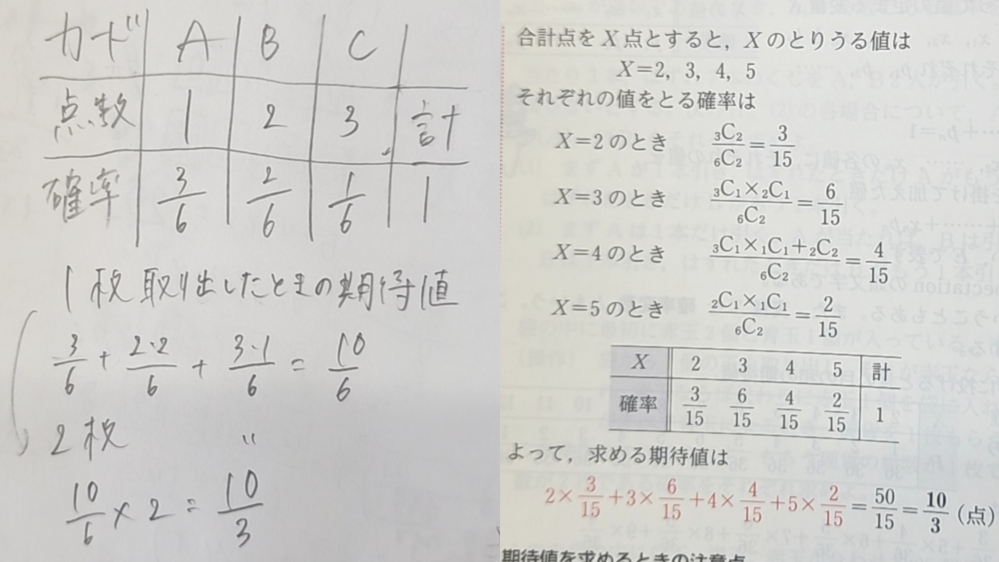 カード A B C
点数 1 2 3 計
確率 3/6 2/6 1/6 1
1枚取り出したときの期待値
3/6 + 2・2/6 + 3・1/6 = 10/6
2枚 〃
10/6 × 2 = 10/3
合計点を X 点とすると，X のとりうる値は
X=2, 3, 4, 5
それぞれの値をとる確率は
X=2のとき ₃C₂/₆C₂ = 3/15
X=3のとき ₃C₁×₂C₁/₆C₂ = 6/15
X=4のとき ₃C₁×₁C₁+₂C₂/₆C₂ = 4/15
X=5のとき ₂C₁×₁C₁/₆C₂ = 2/15
X 2 3 4 5 計
確率 3/15 6/15 4/15 2/15 1
よって，求める期待値は
2×3/15+3×6/15+4×4/15+5×2/15=50/15=10/3（点）
期待値を求めるときの注意点